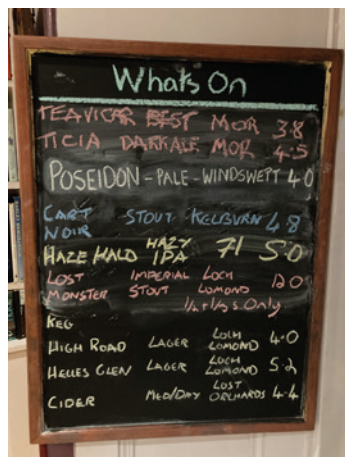 What's On
TEA VICAR BEST MOR 3.8
TICIA DARK ALE MOR 4.5
POSEIDON - PALE - WINDSWEPT 4.0
CART NOIR STOUT KELBURN 4.8
HAZE HALD HAZY IPA 71 5.0
LOST MONSTER IMPERIAL STOUT LOCH LOMOND 12.0
1/2 + 1/3s Only
KEG
HIGH ROAD LAGER LOCH LOMOND 4.0
HELLES GLEN LAGER LOCH LOMOND 5.2
CIDER MED/DRY LOST ORCHARDS 4.4